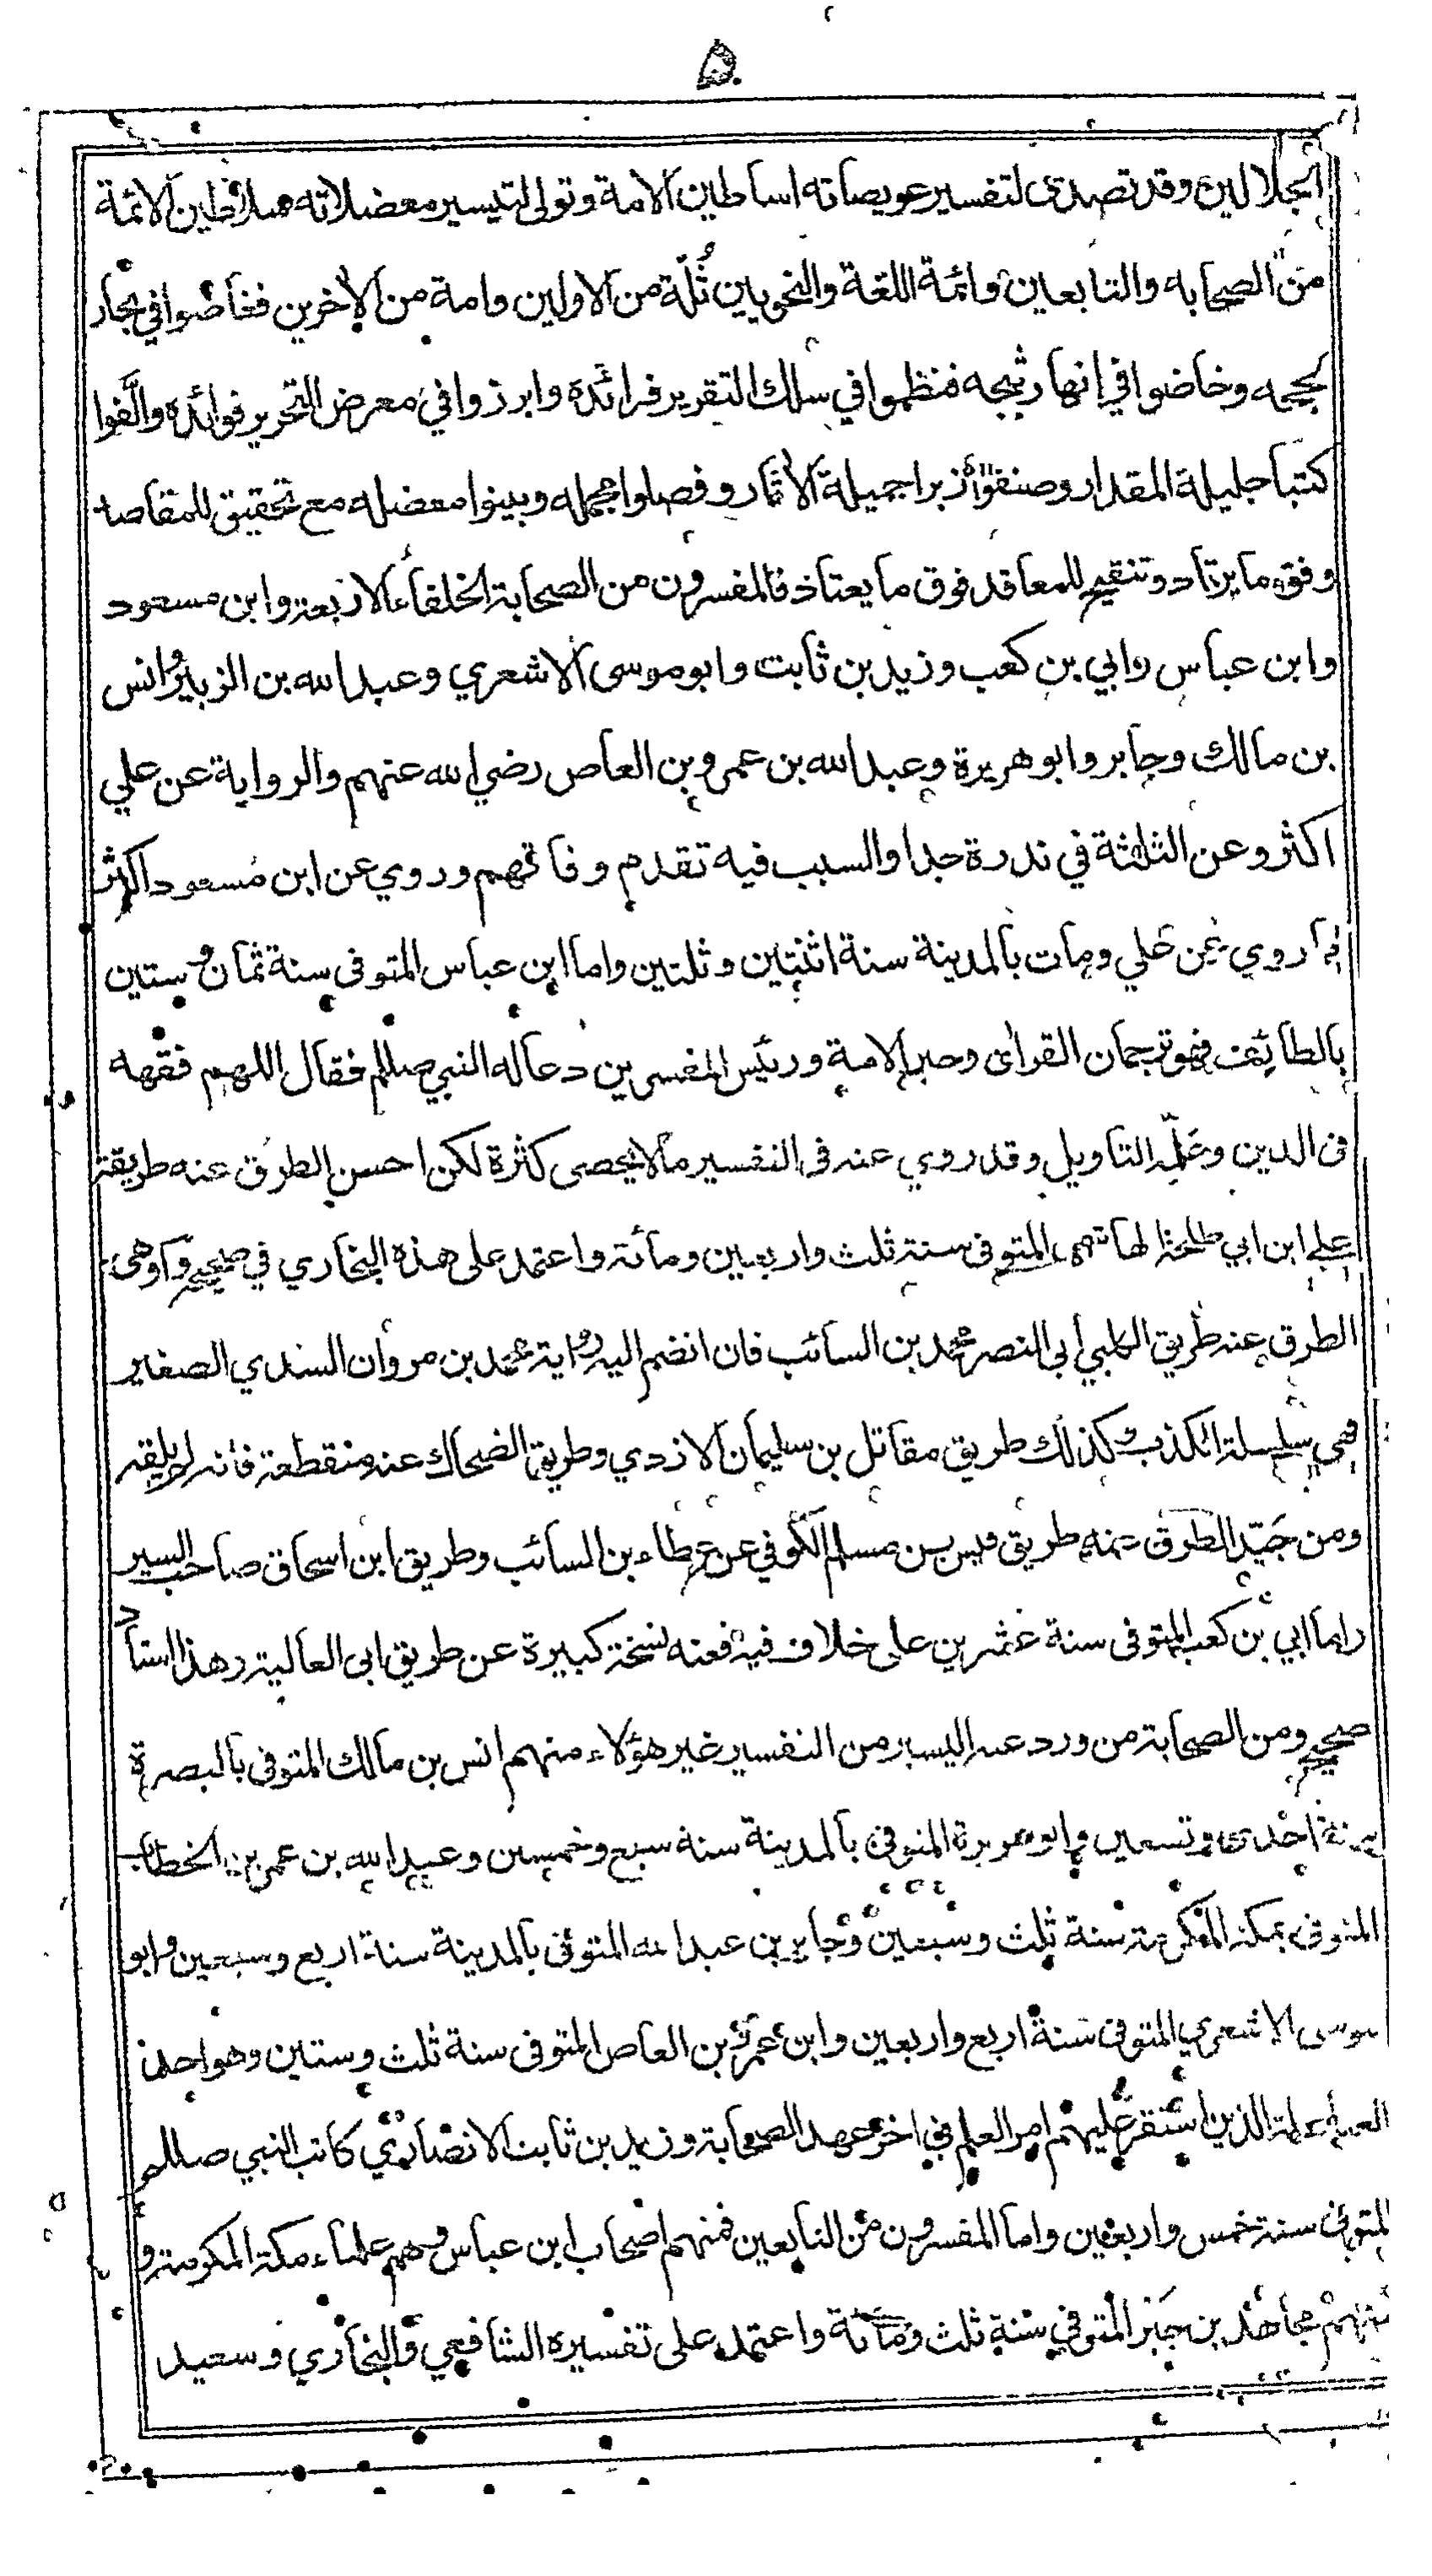 ۵
الجلالين وقد تصدى لتفسير عويصاته اساطين الامة وتولى لتيسير معضلاته سلاطين الائمة
من الصحابه والتابعين وائمة اللغة والنحويين ثُلّة من الاولين وامة من الاخرين فغاصوا في بحار
لججه وخاضوا في انهار ثبجه فنظموا في سلك التقرير فرائده وابرزوا في معرض التحرير فوائده والّفوا
كتبا جليلة المقدار وصنفوا زبرا جميلة الاثار وفصلوا مجمله وبينوا معضله مع تحقيق للمقاصد
وفق ما يرتاد وتنقيح للمعاقد فوق ما يعتاد فالمفسرون من الصحابة الخلفاء الاربعة وابن مسعود
وابن عباس وابي بن كعب وزيد بن ثابت وابو موسى الاشعري وعبد الله بن الزبير وانس
بن مالك وجابر وابو هريرة وعبد الله بن عمرو بن العاص رضي الله عنهم والرواية عن علي
اكثر وعن الثلاثة في ندرة جدا والسبب فيه تقدم وفاتهم وروي عن ابن مسعود اكثر
مما روي عن علي ومات بالمدينة سنة اثنتين وثلثين واما ابن عباس المتوفى سنة ثمان وستين
بالطائف فهو ترجمان القران وحبر الامة ورئيس المفسرين دعا له النبي صللم فقال اللهم فقهه
فى الدين وعَلِّمه التاويل وقد روي عنه فى التفسير ما لا يحصى كثرة لكن احسن الطرق عنه طريقة
علي ابن ابي طلحة الهاشمي المتوفى سنة ثلث واربعين ومائة واعتمد على هذه البخاري في صحيحه واوهى
الطرق عنه طريق الكلبي أبي النصر محمد بن السائب فان انضم اليه رواية محمد بن مروان السدي الصغير
فهي سلسلة الكذب وكذلك طريق مقاتل بن سليمان الازدي وطريق الضحاك عنه منقطعة فانه لم يلقه
ومن جَيّد الطرق عنه طريق قيس بن مسلم الكوفي عن عطاء بن السائب وطريق ابن اسحاق صاحب السير
واما ابي بن كعب المتوفى سنة عشرين على خلاف فيه فعنه نسخة كبيرة عن طريق ابى العالية وهذا اسناد
صحيح ومن الصحابة من ورد عنه اليسير من التفسير غير هؤلاء منهم انس بن مالك المتوفى بالبصرة
سنة احدى وتسعين وابو هريرة المتوفى بالمدينة سنة سبع وخمسين وعبد الله بن عمر بن الخطاب
المتوفى بمكة المكرمة سنة ثلث وسبعين وجابر بن عبد الله المتوفى بالمدينة سنة اربع وسبعين وابو
موسى الاشعري المتوفى سنة اربع واربعين وابن عمرو بن العاص المتوفى سنة ثلث وستين وهو احد
العبادلة الذين استقر عليهم امر العلم في اخر عهد الصحابة وزيد بن ثابت الانصاري كاتب النبي صللم
المتوفى سنة خمس واربعين واما المفسرون من التابعين فمنهم اصحاب ابن عباس وهم علماء مكة المكرمة و
منهم مجاهد بن جبر المتوفى سنة ثلث ومائة واعتمد على تفسيره الشافعي والبخاري وسعيد